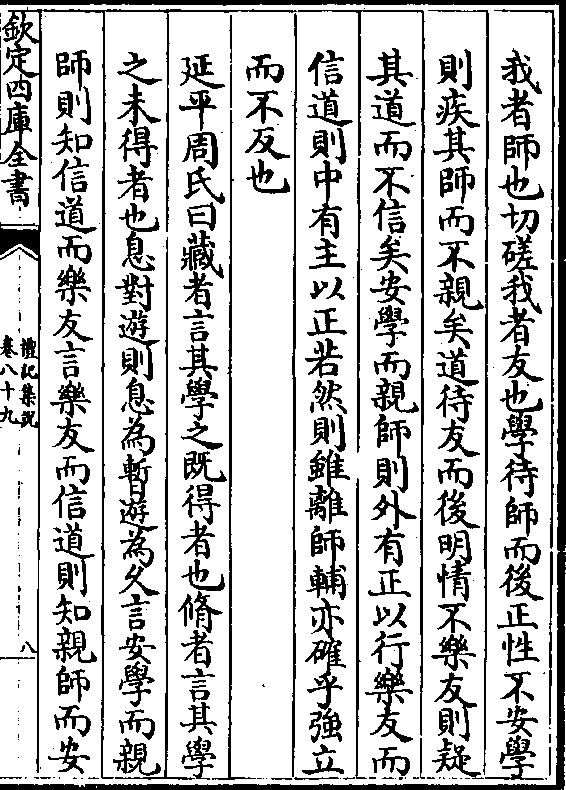 我者師也切磋我者友也學待師而後正性不安學
則疾其師而不親矣道待友而後明情不樂友則疑
其道而不信矣安學而親師則外有正以行樂友而
信道則中有主以正若然則雖離師輔亦確乎強立
而不反也
延平周氏曰藏者言其學之既得者也脩者言其學
之未得者也息對遊則息為暫遊為久言安學而親
師則知信道而樂友言樂友而信道則知親師而安
欽定四庫全書
禮記集說
卷八十九
八